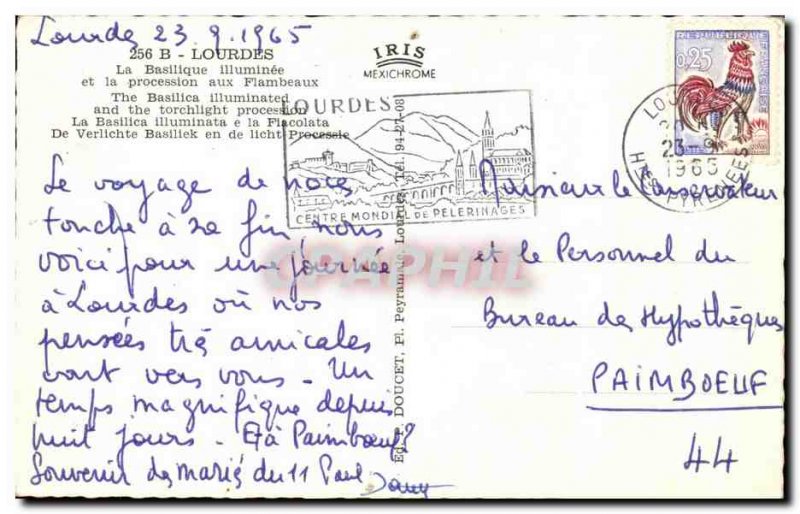 Lourdes 23.9.1965
256 B - LOURDES
La Basilique illuminée
et la procession aux Flambeaux
The Basilica illuminated
and the torchlight procession
La Basilica illuminata e la Fiacolata
De Verlichte Basiliek en de licht Processie
IRIS
MEXICHROME
LOURDES
CENTRE MONDIAL DE PELERINAGES
REPUBLIQUE FRANÇAISE
0,25
23-9
1965
HTES PYRENEES
Le voyage de noces
touche à sa fin nous
voici pour une journée
à Lourdes où nos
pensées très amicales
vont vers vous - Un
temps magnifique depuis
huit jours - Et à Paimbœuf?
Souvenir des mariés du 11
Paul
Dany
Ed. P. DOUCET, Pl. Peyramale, Lourdes, Tél. 94-27-08
CPAPHIL
Monsieur le Conservateur
et le Personnel du
Bureau des Hypothèques
PAIMBOEUF
44